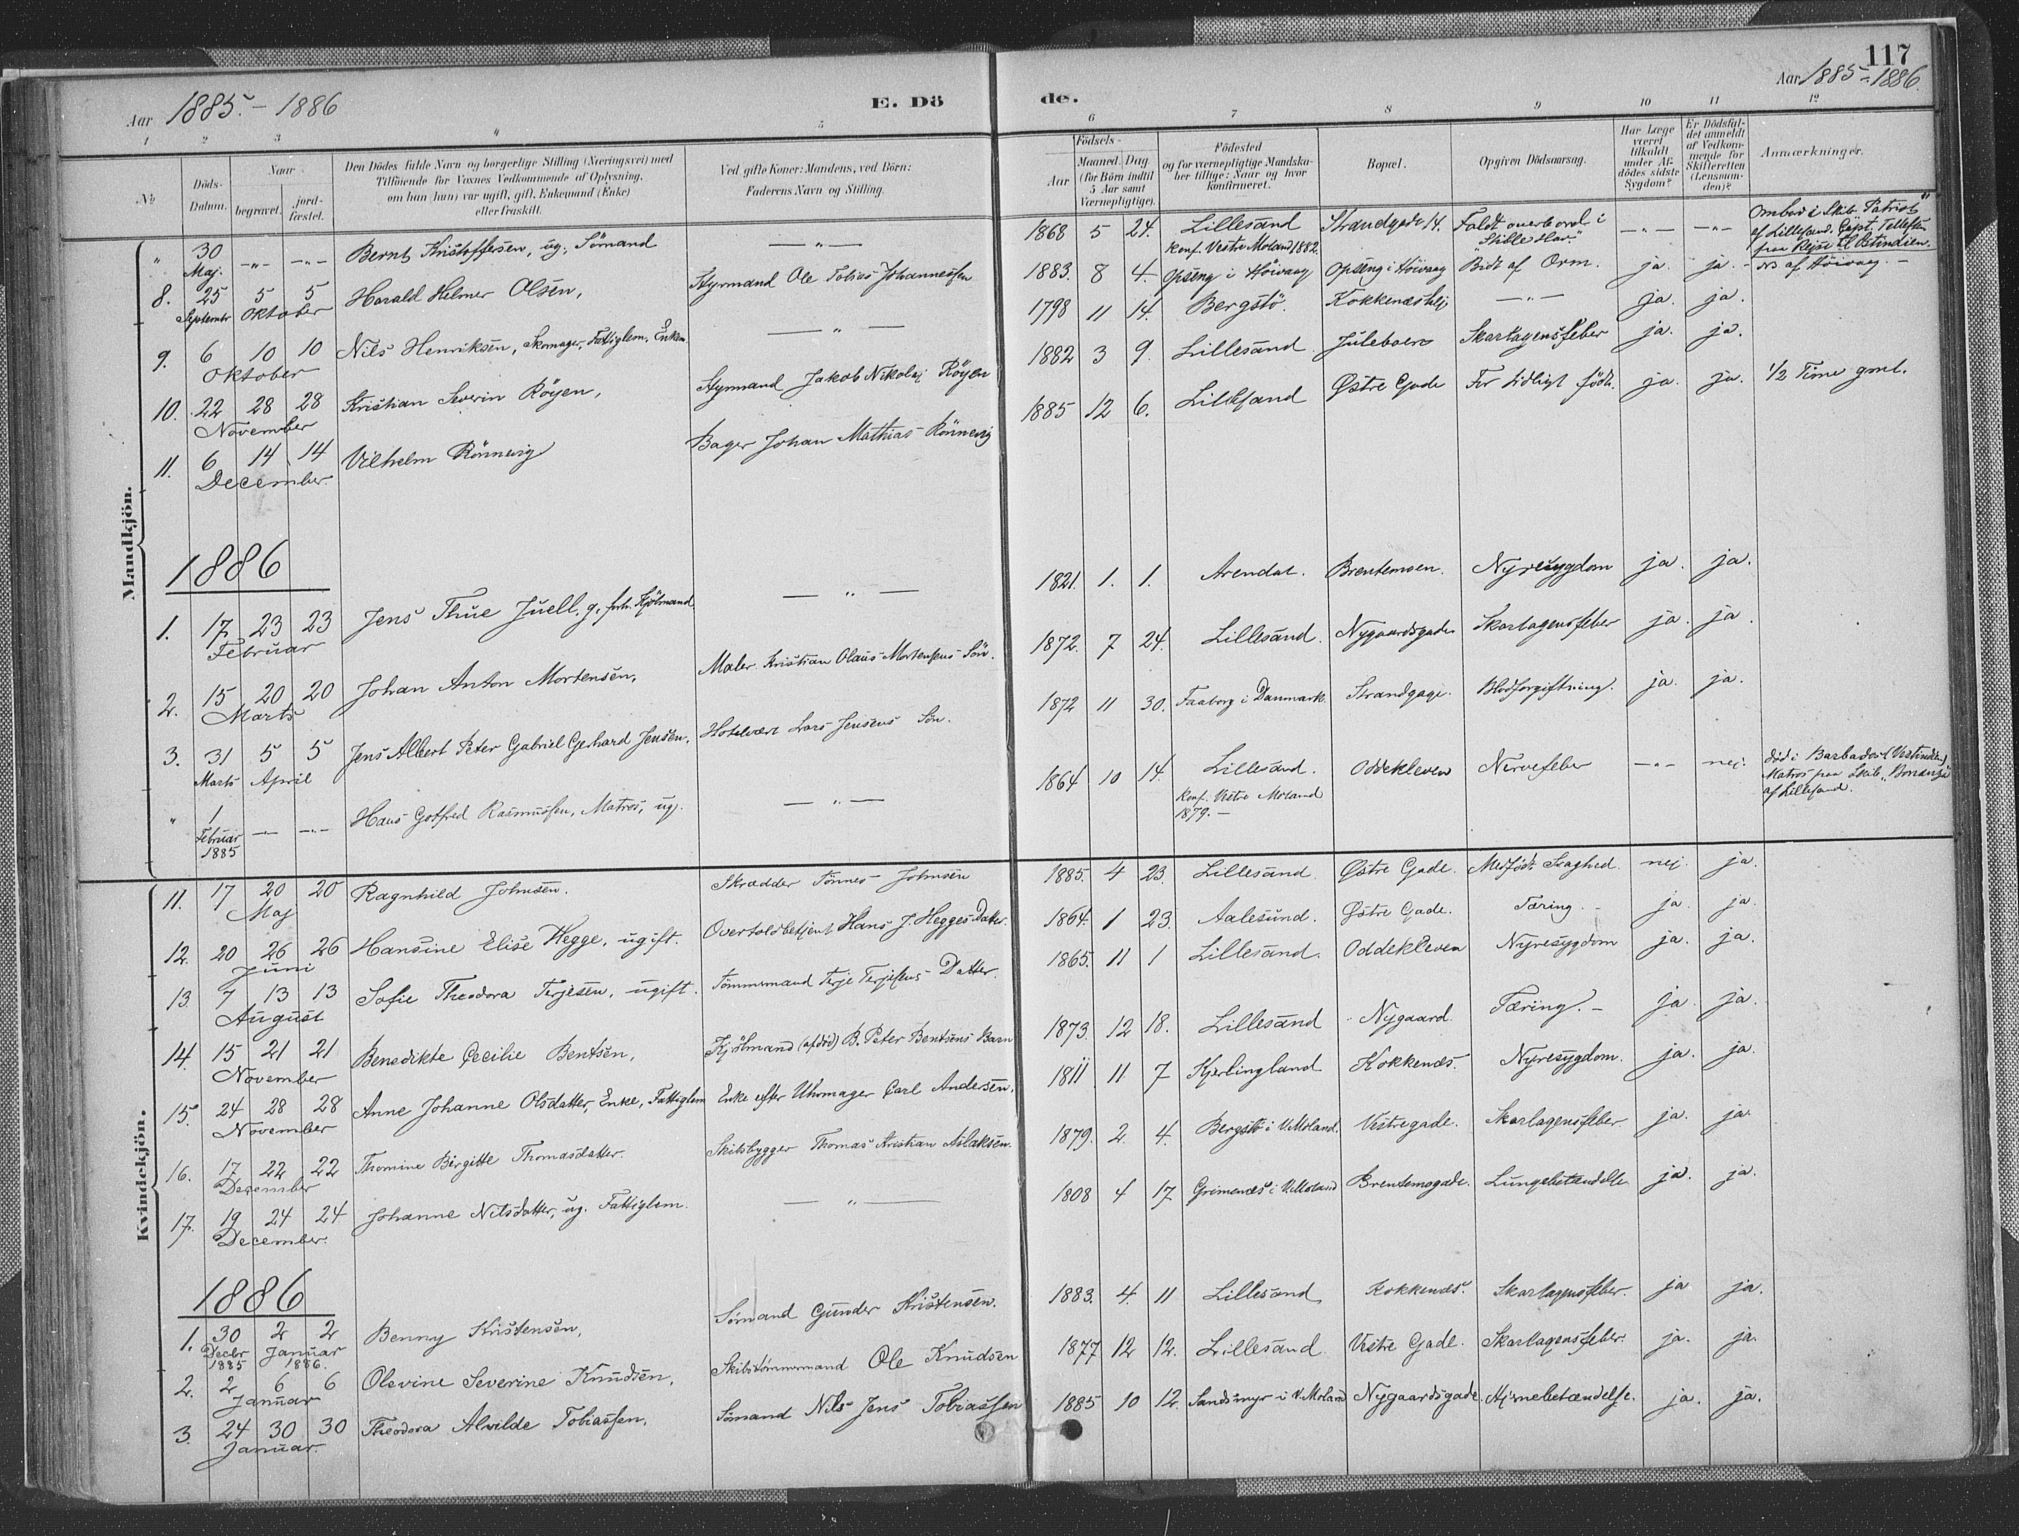 117
Aar 1885 - 1886
E. Dö
de.
Aar 1885 - 1886.
1 2 3 4 5 6 7 8 9 10 11 12
No
Döds-Datum.
Naar
begravet.
jord-fæstet.
Den Dödes fulde Navn og borgerlige Stilling (Næringsvei) med
Tilföiende for Voxnes Vedkommende af Oplysning,
om han (hun) var ugift, gift, Enkemand (Enke)
eller fraskilt.
Ved gifte Koner: Mandens, ved Börn:
Faderens Navn og Stilling.
Födsels-
Aar
Maaned. Dag.
(for Börn indtil
5 Aar samt
Værnepligtige).
Födested
og for værnepligtige Mandska-
ber tillige: Naar og hvor
konfirmeret.
Bopæl.
Opgiven Dödsaarsag.
Har Læge
været
tilkaldt
under Af-
dödes sidste
Sygdom?
Er Dödsfal-
det anmeldt
af Vedkom-
mende for
Skifteretten
(Lensman-
den)?
Anmærkninger.
Mandkjön.
" 30 Maj. —"— —"— Bernt Kristoffersen, ug. Sömand —"— 1868 5 24 Lillesand Strandgade 14. Faldt overbord i —"— —"— Ombord i Skib "Patriot"
konf. Vestre Moland 1882.
af Lillesand. Capt. Tellefsen
paa Rejse til Ostindien.
8. 25 September 5 5 Oktober Harald Helmer Olsen, Styrmand Ole Tobias Johannessen 1883. 8 4. Opseng i Höivaag Opseng i Höivaag Bidt af Orm. ja. ja. af Höivaag. —
9. 6 10 10 Oktober Nils Henriksen, Skomager, Fattiglem, Enkem. —"— 1798 11 14. Bergstö. Kokkenes —"— ja. ja.
10. 22 28 28 November Kristian Severin Röyen, Styrmand Jakob Nikolaj Röyen 1882 3 9. Lillesand Skarlagensfeber ja. ja.
11. 6 14 14 December. Vilhelm Rönnevig Bager Johan Mathias Rönnevig 1885 12 6. Lillesand Østre Gade For tidligt födt. ja. ja. 1/2 Time gml.
1886
1. 17 23 23 Februar Jens Thue Juell. g. Kjöbmand —"— 1821. 1. 1. Arendal. Brentemoen. Nyresygdom ja. ja.
2. 15 20 20 Marts Johan Anton Mortensen, Maler Kristian Olaus Mortensens Sön. 1872. 7 24. Lillesand. Nygaardsgade Skarlagensfeber ja. ja.
3. 31 Marts 5 5 April Jens Albert Peter Gabriel Gerhard Jensen, Hotelvært Lars Jensens Sön. 1872 11 30. Faaborg i Danmark. Strandgage. Blodforgiftning. ja. ja.
" 1 Februar 1885 —"— —"— Hans Gotfred Rasmussen, Matros, ug. —"— 1864 10 14. Lillesand. Oddekleven Nervefeber —"— nej. död i Barbados (Vestindien)
konf. Vestre Moland
1879. —
Matros paa Skib
af Lillesand.
Kvindekjön.
11. 17 20 20 Maj Ragnhild Johnsen. Skrædder Tönnes Johnsen 1885. 4 23. Lillesand Østre Gade. Medfödt Svaghed. nej. ja.
12. 20 26 26 Juni Hansine Elise Hegge, ugift. Overtoldbetjent Hans J. Hegges Datter. 1864. 1 23. Aalesund. Østre Gade. Tæring. — ja. ja.
13. 7 13 13 August Sofie Theodora Terjesen, ugift. Tömmermand Terje Terjesens Datter. 1865. 11 1 Lillesand. Oddekleven Nyresygdom ja. ja.
14. 15 21 21 November Benedikte Cecilie Bentsen, Kjöbmand (afdöd) B. Peter Bentsens Barn 1873. 12 18. Lillesand Nygaard. Tæring. — ja. ja.
15. 24 28 28 November Anne Johanne Olsdatter, Enke, Fattiglem Enke efter Uhrmager Carl Andersen. 1811 11 7 Kjerlingland Kokkenes. Nyresygdom. ja. ja.
16. 17 22 22 December Thomine Birgitte Thomasdatter. Skibsbygger Thomas Kristian Aslaksen. 1879. 2. 4. Bergstö i V.Moland. Vestregade. Skarlagensfeber ja. ja.
17. 19 24 24 December. Johanne Nilsdatter, ug. Fattiglem. —"— 1808 4 17 Grimenes i V.Moland Brentemogade. Lungebetændelse ja. ja.
1886
1. 30 Decbr 1885 2 2 Januar 1886. Benny Kristensen, Sömand Gunder Kristensen. 1883. 4. 11 Lillesand Kokkenes. Skarlagensfeber. ja ja.
2. 2 6 6 Januar Olevine Severine Knudsen, Skibstömmermand Ole Knudsen 1877 12 12. Lillesand Vestre Gade. Skarlagensfeber. ja. ja.
3. 24 30 30 Januar. Theodora Alvilde Tobiassen, Sömand Nils Jens Tobiassen 1885 10 12. Sandsmyr i V.Moland Nygaardsgade. Hjernebetændelse. ja. ja.